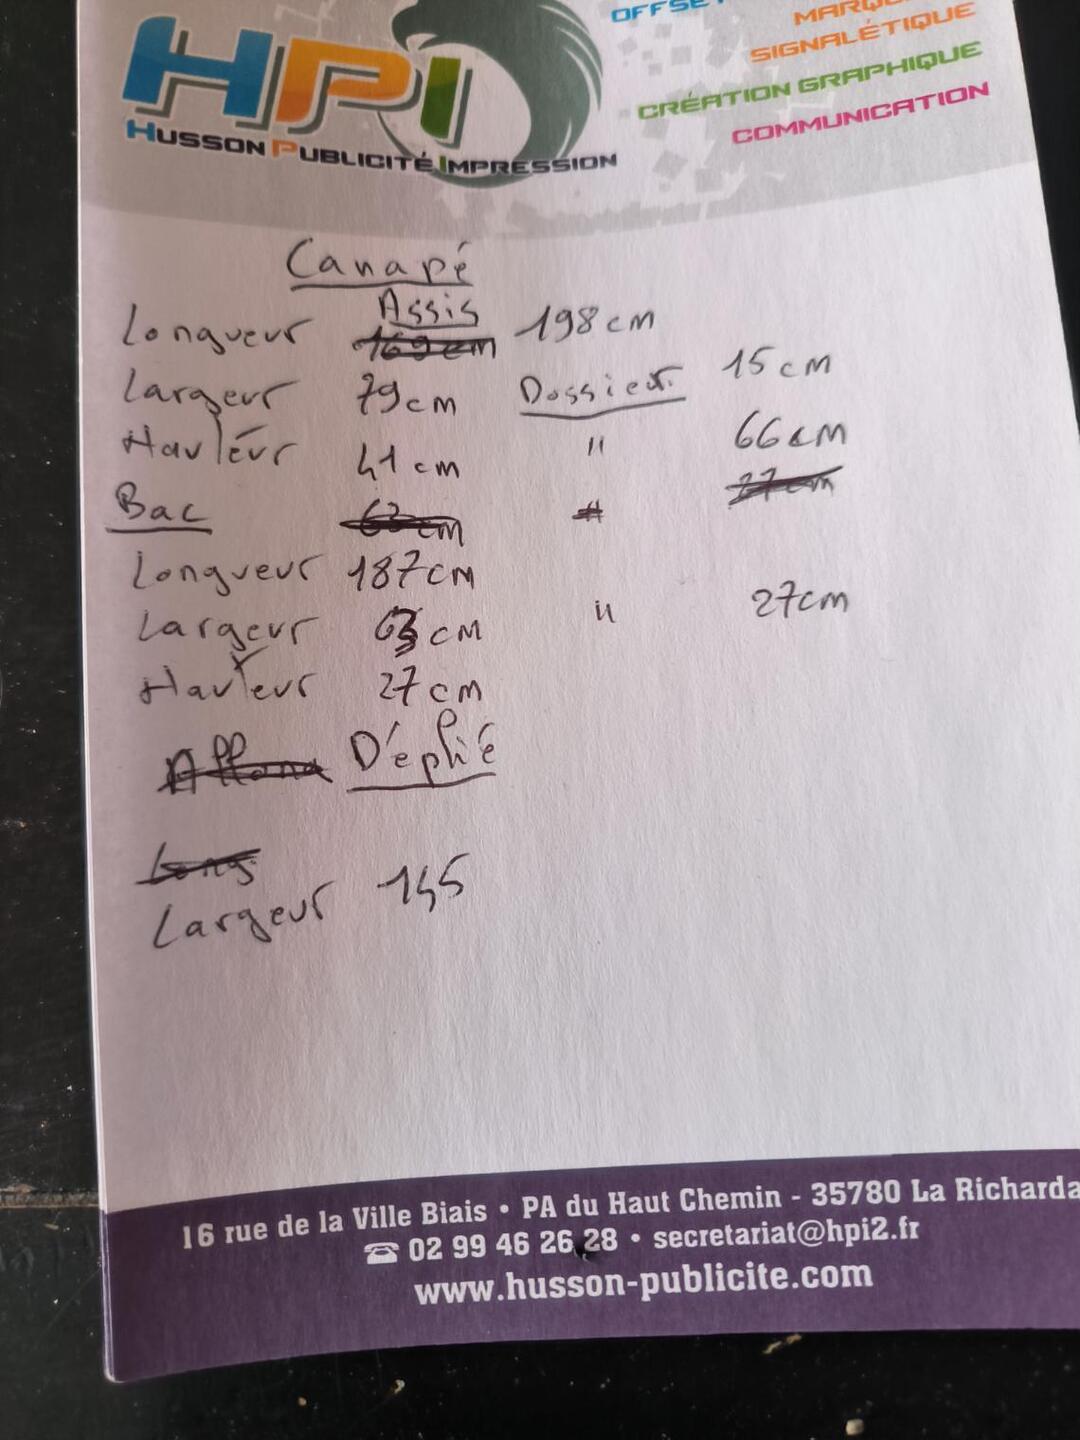 OFFSET
MARQU
SIGNALÉTIQUE
CRÉATION GRAPHIQUE
COMMUNICATION
HPI
HUSSON PUBLICITÉ IMPRESSION
Canapé
Assis
Longueur 169cm 198cm
Largeur 79cm Dossier 15cm
Hauteur 41cm " 66cm
Bac 63cm " 27cm
Longueur 187cm
Largeur 63cm " 27cm
Hauteur 27cm
Déplié
Long
Largeur 145
16 rue de la Ville Biais • PA du Haut Chemin - 35780 La Richarda
☎ 02 99 46 26 28 • secretariat@hpi2.fr
www.husson-publicite.com